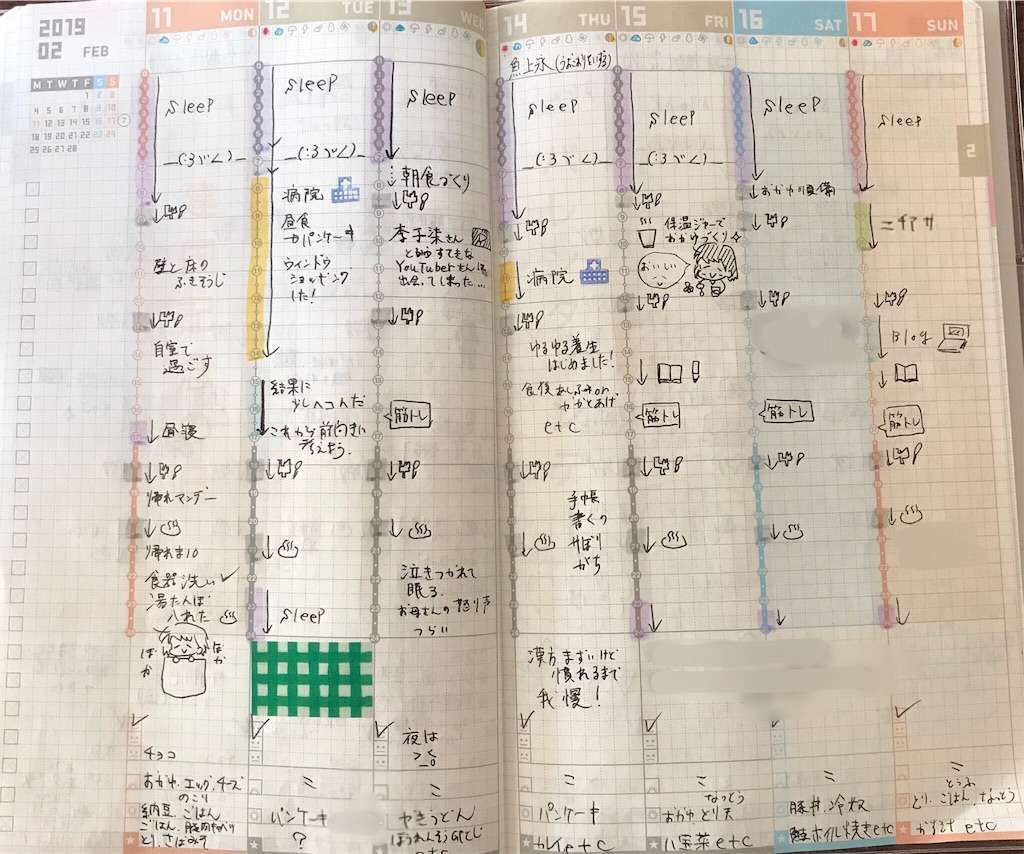 2019
02 FEB
M T W T F S S
1 2 3
4 5 6 7 8 9 10
11 12 13 14 15 16 17
18 19 20 21 22 23 24
25 26 27 28
7
11 MON
sleep
_(:3」∠)_
壁と床の
ふきそうじ
自室で
過ごす
昼寝
帰れマンデー
帰れま10
食器洗い✓
湯たんぽ
入れた
ぽか
ぽか
チョコ
おかゆ、エッグ、チーズ
のこり
納豆ごはん
12 TUE
sleep
_(:3」∠)_
病院
昼食
パンケーキ
ウィンドウ
ショッピング
した!
結果に
少しヘコんだ
これから前向きに
考えよう。
sleep
パンケーキ
?
13 WED
sleep
朝食づくり
李子柒さん
YouTuberさんに
出会ってしまった…
筋トレ
泣きつかれて
眠る
お母さんの怒り声
つらい
夜は
やきうどん
etc
14 THU
魚上氷(うおこおりをいずる)
sleep
_(:3」∠)_
病院
ゆるゆる養生
はじめました!
食後あしふみor
かかとあげ
etc
手帳
書くの
サボり
がち
漢方まずいけど
慣れるまで
我慢!
パンケーキ
カレイetc
15 FRI
sleep
_(:3」∠)_
保温ジャーで
おかゆづくり☆
おいしい
筋トレ
なっとう
おかゆ とり天
八宝菜etc
16 SAT
sleep
おかゆ準備
筋トレ
豚丼 冷奴
鮭ホイル焼きetc
17 SUN
2
sleep
ニチアサ
Blog
筋トレ
とうふ
とり、ごはん、なっとう
etc